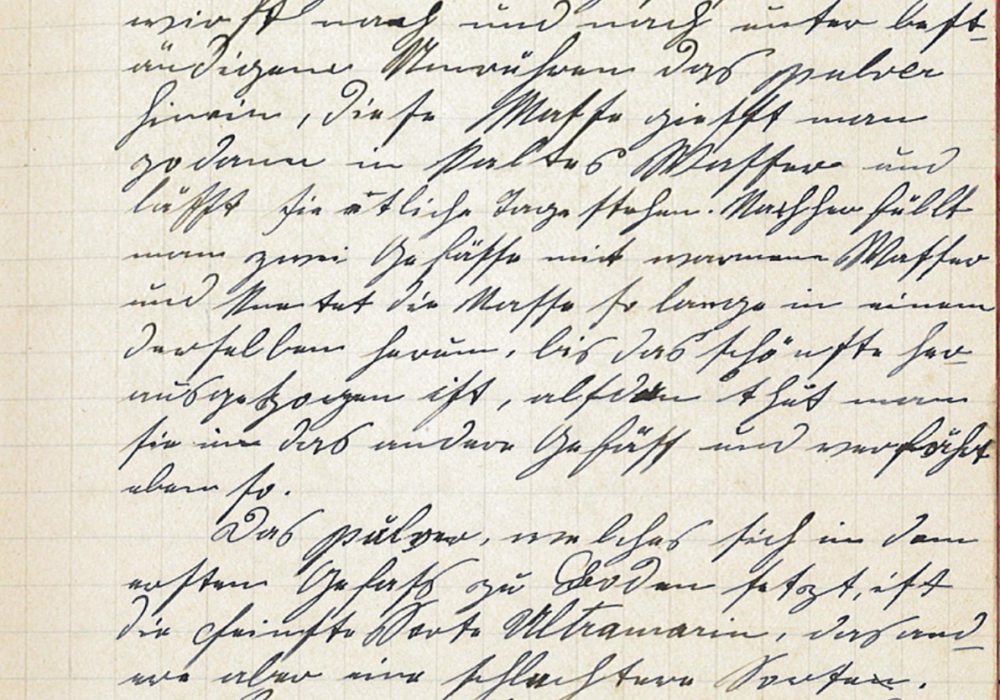 wirft nach und nach unter best-
ändigem Umrühren das pulver
hinein, diese Masse giesst man
sodann in kaltes Wasser und
lässt sie etliche Tage stehen. Nachher füllt
man zwei Gefässe mit warmem Wasser
und knetet die Masse so lange in einem
derselben herum, bis das schönste her-
ausgezogen ist, alsdan thut man
sie in das andere Gefäss und verfährt
eben so.
Das pulver, welches sich in dem
ersten Gefäss zu Boden setzt, ist
die feinste Sorte Ultramarin, das and-
ere aber eine schlechtere Sorten.